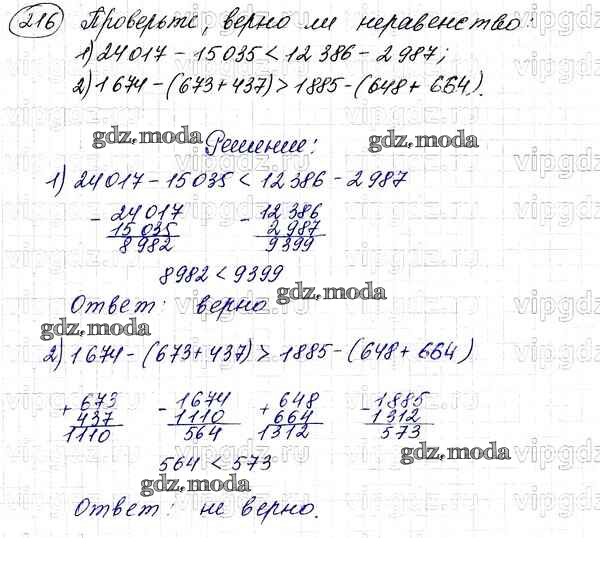 216 Проверьте, верно ли неравенство:
1) 24017 - 15035 < 12386 - 2987;
2) 1674 - (673 + 437) > 1885 - (648 + 664).
gdz.moda Решение: gdz.moda
1) 24017 - 15035 < 12386 - 2987
- 24017 - 12386
15035 2987
8982 9399
8982 < 9399
Ответ: верно gdz.moda
gdz.moda
2) 1674 - (673 + 437) > 1885 - (648 + 664)
+ 673 - 1674 + 648 - 1885
437 1110 664 1312
1110 564 1312 573
564 < 573 gdz.moda
gdz.moda
Ответ: не верно.
vipgdz.ru